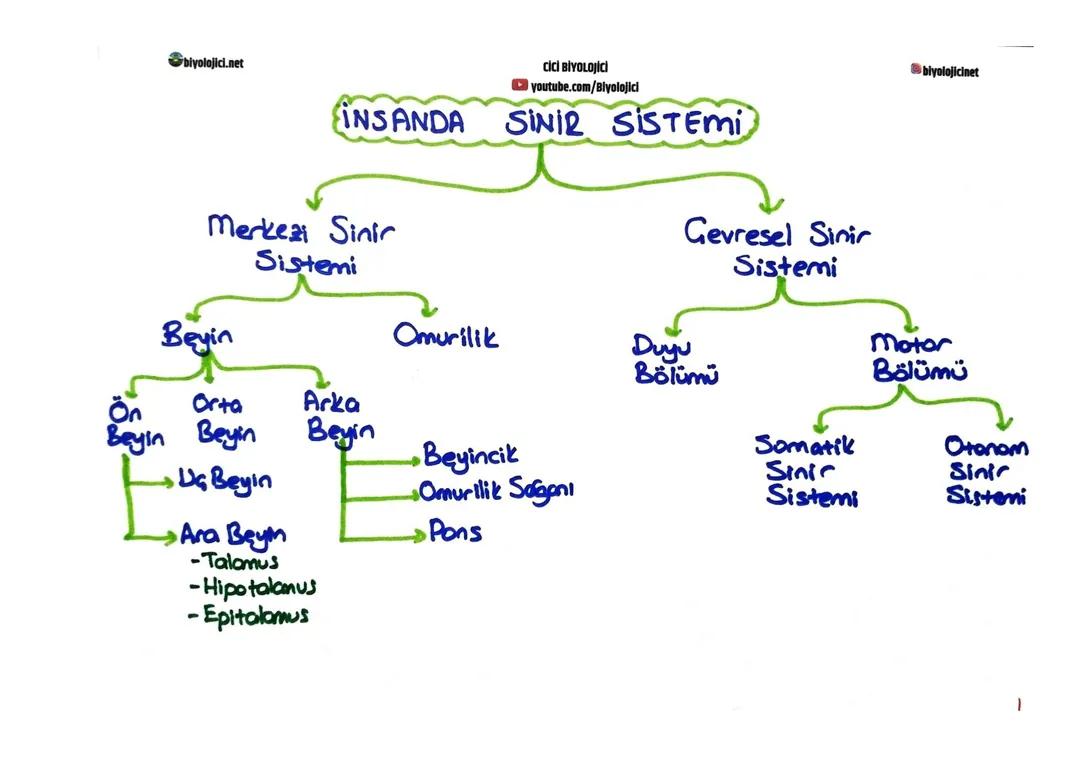 biyolojici.net
CİCİ BİYOLOJİCİ
youtube.com/Biyolojici
biyolojicinet
İNSANDA SİNİR SİSTEMİ
Merkezi Sinir
Sistemi
Çevresel Sinir
Sistemi
Beyin
Omurilik
Duyu
Bölümü
Motor
Bölümü
Ön
Beyin
Orta
Beyin
Arka
Beyin
Uç Beyin
Ara Beyin
-Talamus
-Hipotalamus
-Epitalamus
Beyincik
Omurilik Soğanı
Pons
Somatik
Sinir
Sistemi
Otonom
Sinir
Sistemi
1